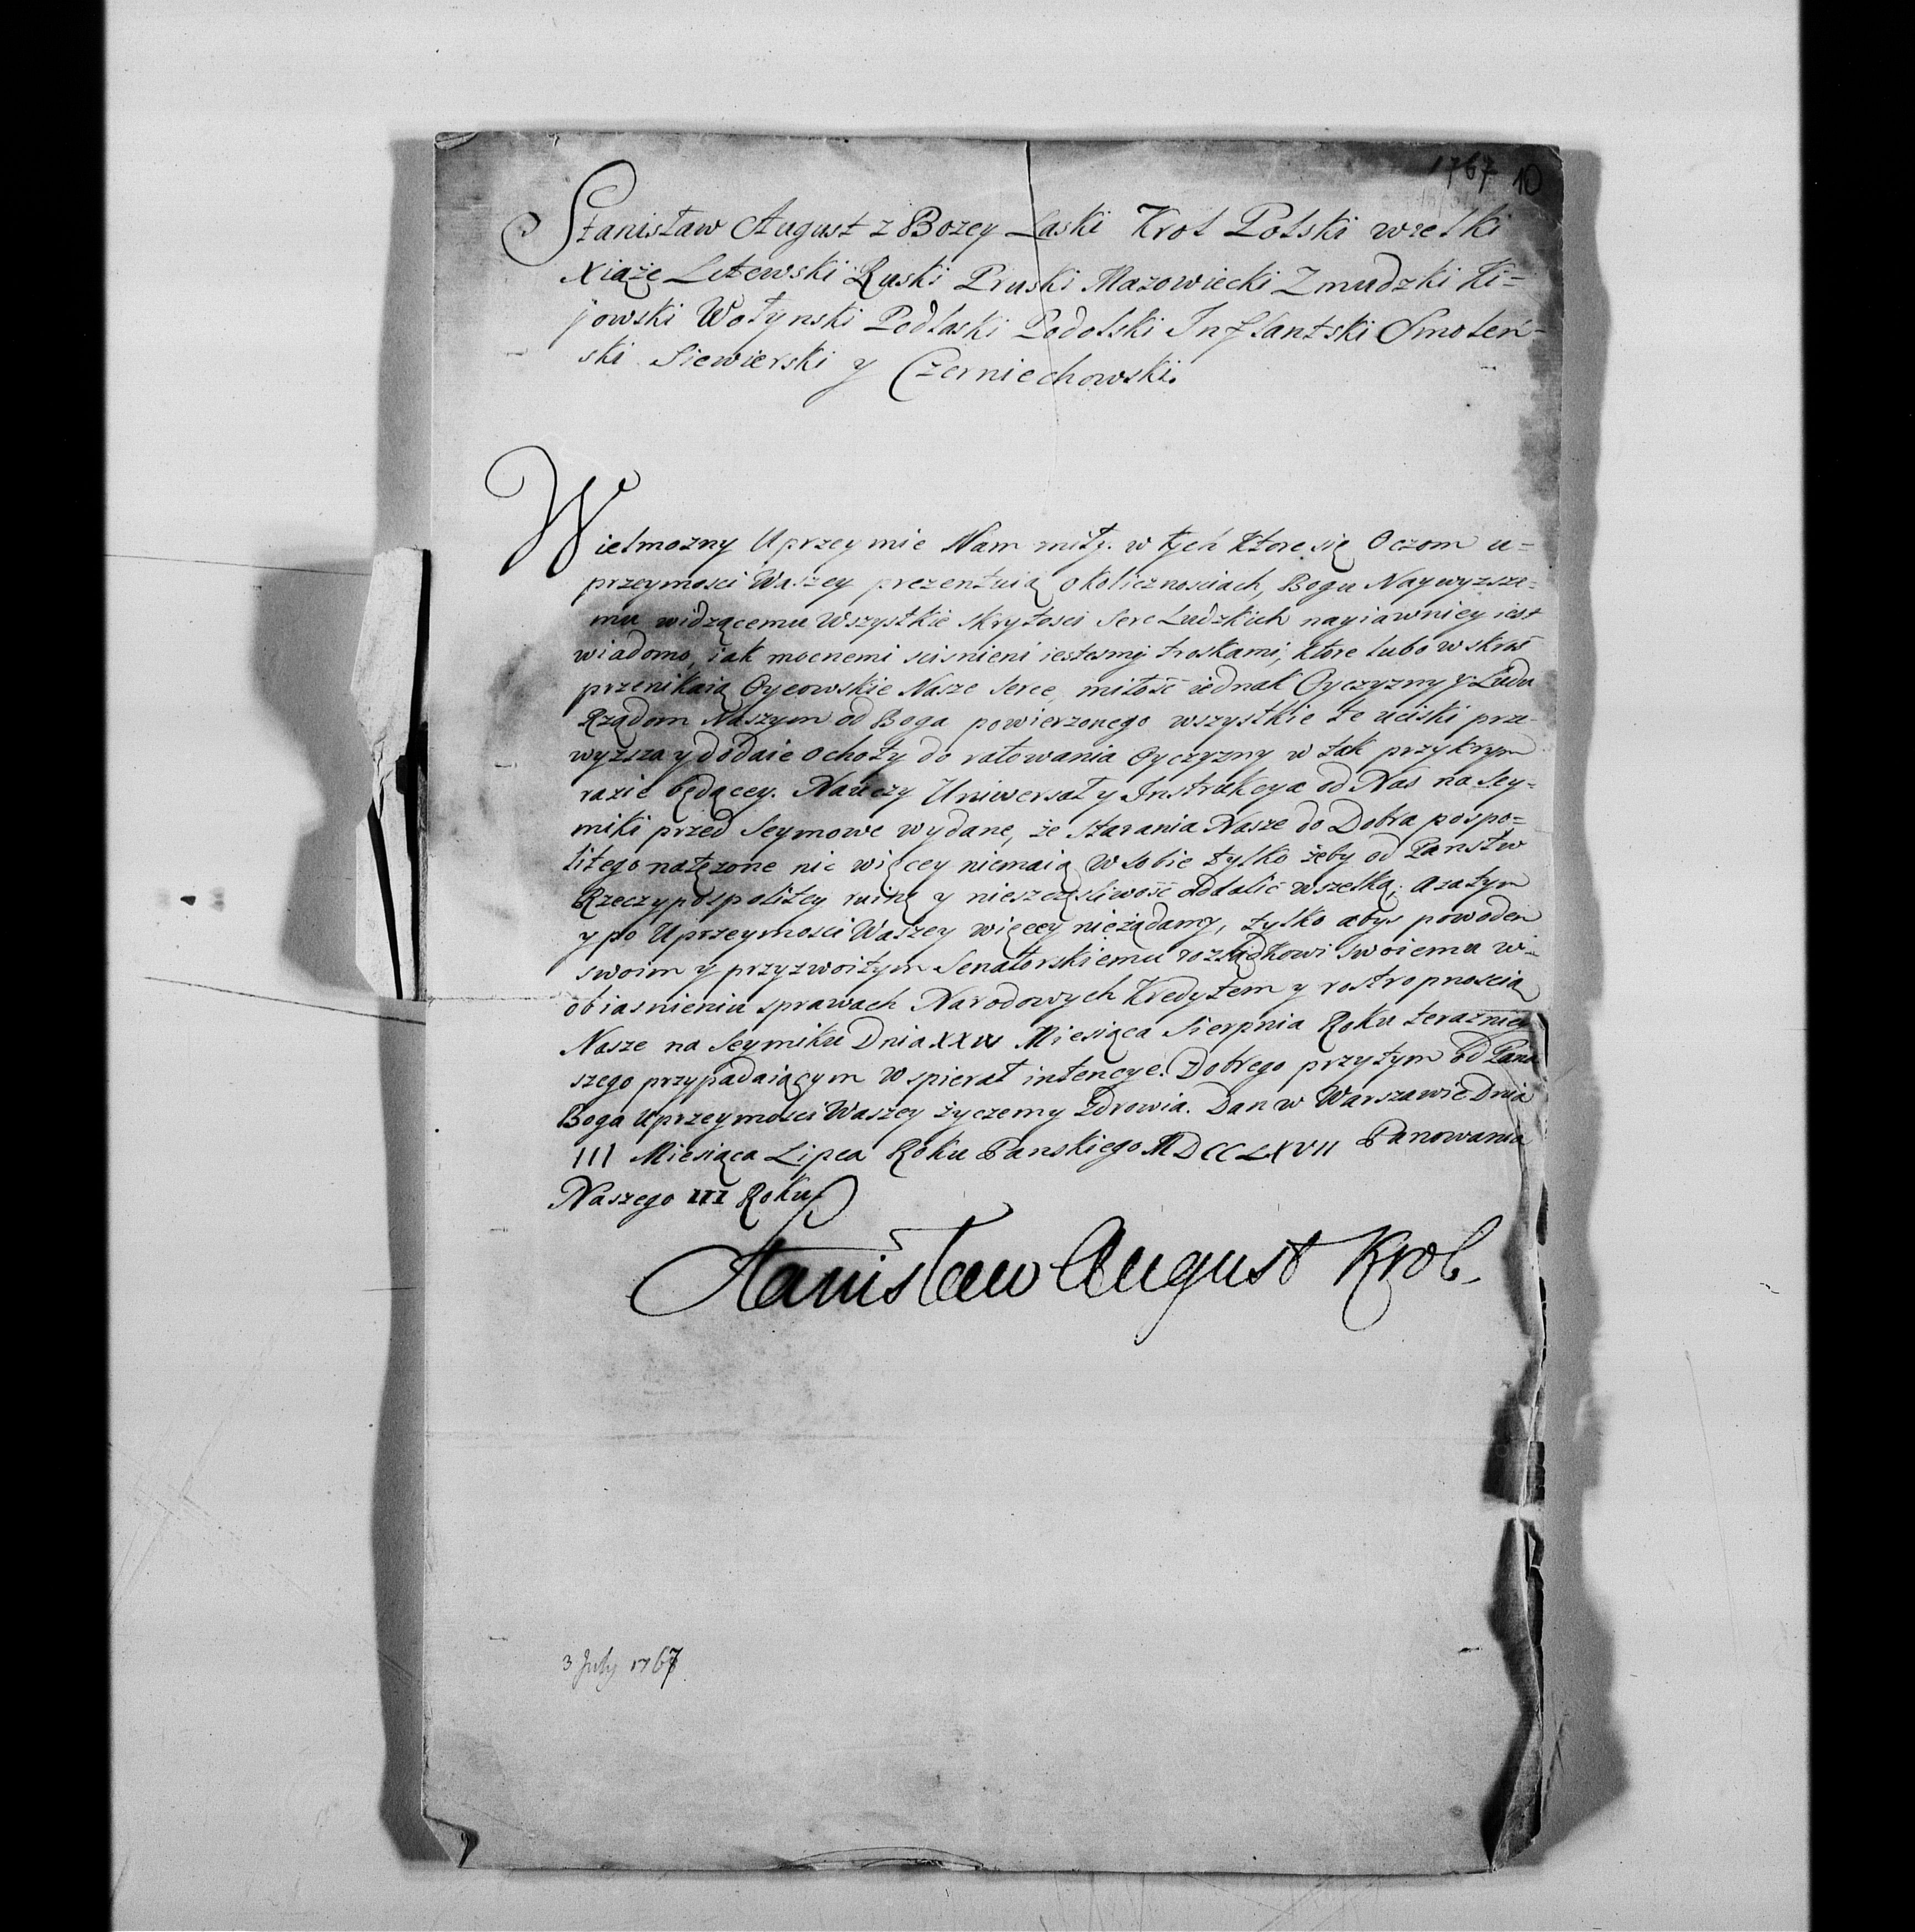 1767 10
Stanisław August z Bozey Łaski Krol Polski wielki
Xiąże Litewski Ruski Pruski Mazowiecki Zmudzki Ki=
jowski Wołynski Podlaski Podolski Inflantski Smolen=
ski Siewierski y Czerniechowski.
Wielmozny Uprzeymie Nam miły. w tych ktore się Oczom u=
przeymosci Waszey prezentuią okolicznosciach, Bogu Naywyzsze=
mu widzącemu Wszystkie skrytosci Serc Ludzkich nayiawniey iest
wiadomo, iak mocnemi scisnieni iestesmy troskami, ktore lubo wskroś
przenikaią Oycowskie Nasze Serce, miłość iednak Oyczyzny y Ludu
Rządom Naszym od Boga powierzonego wszystkie te uciski prze=
wyższa y dodaie ochoty do ratowania Oyczyzny w tak przykrym
razie będącey. Nauczy Uniwersał y Instrukcya od Nas na Sey=
miki przed Seymowe wydane, że starania Nasze do Dobra pospo=
litego natężone nic więcey niemaią w sobie tylko żeby od Państw
Rzeczypospolitey ruinę y nieszczęśliwość oddalić wszelką; a zatym
y po Uprzeymosci Waszey więcey nieżądamy, tylko abyś powodem
swoim y przyzwoitym Senatorskiemu rozsądkowi swoiemu w=
obiasnieniu sprawach Narodowych Kredytem y rostropnoscią
Nasze na Seymiku Dnia Miesiąca Sierpnia Roku teraźniey
szego przypadaiącym wspierał intencye. Dobrego przytym od Pana
Boga Uprzeymosci Waszey życzemy Zdrowia. Dan w Warszawie Dnia
III Miesiąca Lipca Roku Panskiego MDCCLXVII Panowania
Naszego III Roku
Stanisław August Krol.
3 July 1767.